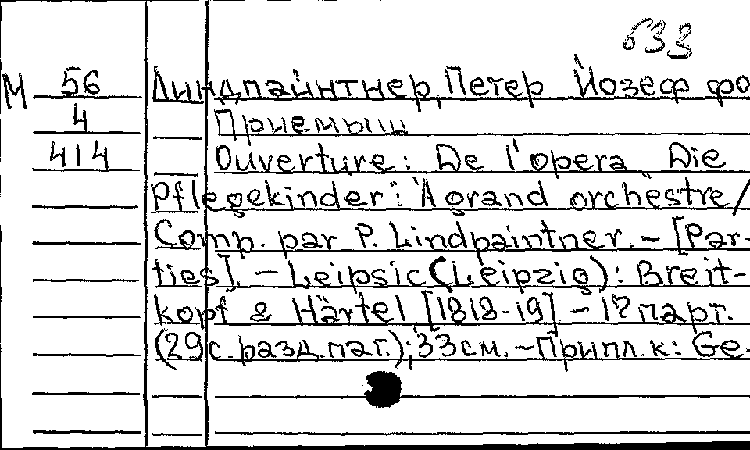 633
М 56 Линдпайнтнер, Петер Йозеф фо
4 Приемыш
414 Ouverture: De l'opera "Die
Pflegekinder": A grand orchestre/
Comp. par P. Lindpaintner. - [Par-
ties]. - Leipsic (Leipzig): Breit-
kopf & Härtel [1818-19] - 17 парт.
(29 с. разд. паг.); 33 см. - Припл. к: Ge-